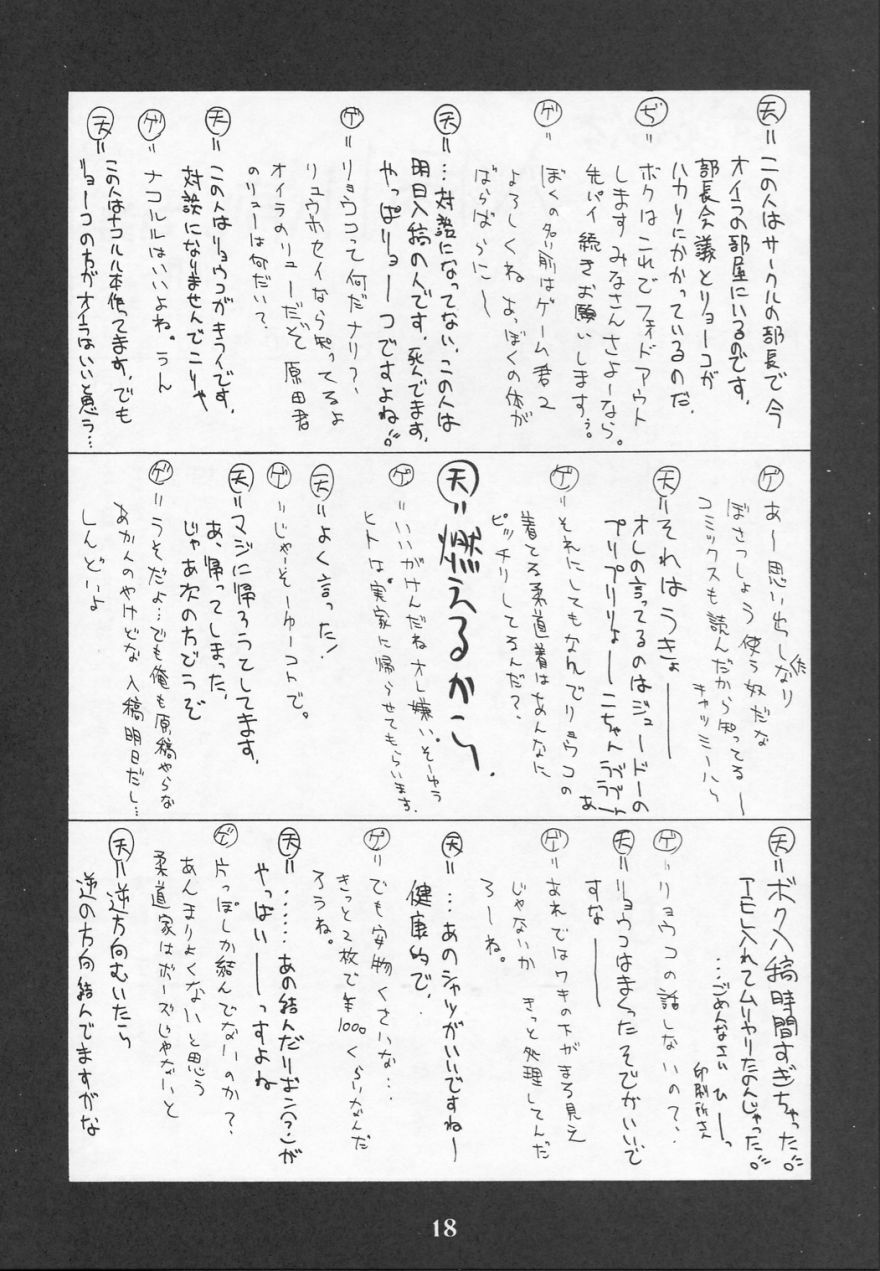 天〃この人はサークルの部長で今
オイラの部屋にいるのです。
部長会議とリョーコが
ハカリにかかっているのだ。
ぢ〃ボクはこれでフェイドアウト
します みなさんさよーなら。
先パイ続きお願いしますぅ。
ゲ〃ぼくの名い前はゲーム君2
よろしくね お、ぼくの体が
ばらばらに〜
天〃…対談になってない、この人は
明日入稿の人です。死んでます。
やっぱリョーコですよね
ゲ〃リョウコって何だナリ?、
リュウホセイなら知ってるよ
オイラのリューだぞ 原田君
のリューは何だい?
天〃この人はリョウコがキライです。
対談になりませんでこりゃ
ゲ〃ナコルルはいいよね。うん
天〃この人はナコルル本作ってます、でも
リョーコの方がオイラはいいと思う…
ゲ〃あー思い出しなり
ぼさつしょう 使う奴だな
コミックスも読んだから知ってるー
キャッミーハら
天〃それはうきょ――
オレの言ってるのはジュードーの
プリプリリょーこちゃん
ゲ〃それにしてもなんでリョウコの
着てる柔道着はあんなに
ピッチリしてるんだ?、
天〃燃えるから、
ゲ〃いいがけんだねオレ嫌い。そーゆう
ヒトは。実家に帰らせてもらいます。
天〃よく言った!
ゲ〃じゃーそーゆーコトで。
天〃マジに帰ろうてしてます。
あ、帰ってしまった、
じゃあ次の方どうぞ
ゲ〃うそだよ…でも俺も原稿やらな
あかんのやけどな 入稿明日だし…
しんどいよ
天〃ボク入稿時間すぎちゃった
アモレ入れてムリヤリたのんじゃった
…ごめんなさい ひーっ
印刷所さん
ゲ〃リョウコの話しないので、、
天〃リョウコはまくったそでがいいで
すな――
ゲ〃あれではワキの下がまる見え
じゃないか きっと処理してんだ
ろーね。
天〃…あのシャツがいいですねー
健康的で、、
ゲ〃でも安物くさいな…
きっと2枚で¥1000くらいなんだ
ろうね。
天〃……あの結んだリボン(?)が
やっぱい――っすよね
ゲ〃片っぽしか結んでないのか?、
あんまりよくないと思う
柔道家はボーズじゃないと
天〃逆方向むいたら
逆の方向結んでますがな
18